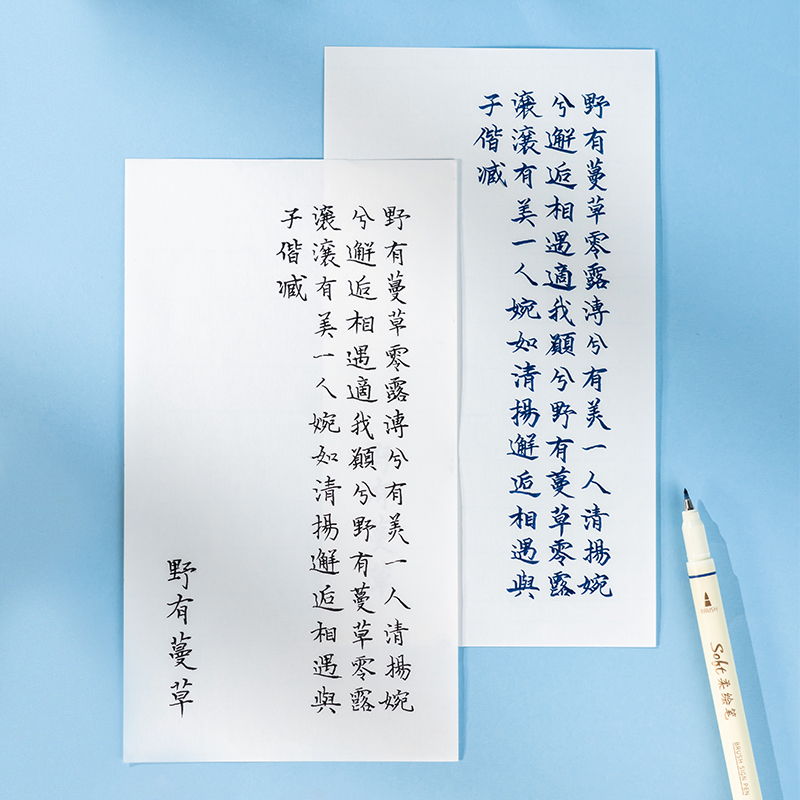 野有蔓草零露漙兮有美一人清揚婉
兮邂逅相遇適我願兮野有蔓草零露
瀼瀼有美一人婉如清揚邂逅相遇與
子偕臧
野有蔓草
野有蔓草零露漙兮有美一人清揚婉
兮邂逅相遇適我願兮野有蔓草零露
瀼瀼有美一人婉如清揚邂逅相遇與
子偕臧
BRUSH
Soft 柔绘笔
BRUSH SIGN PEN